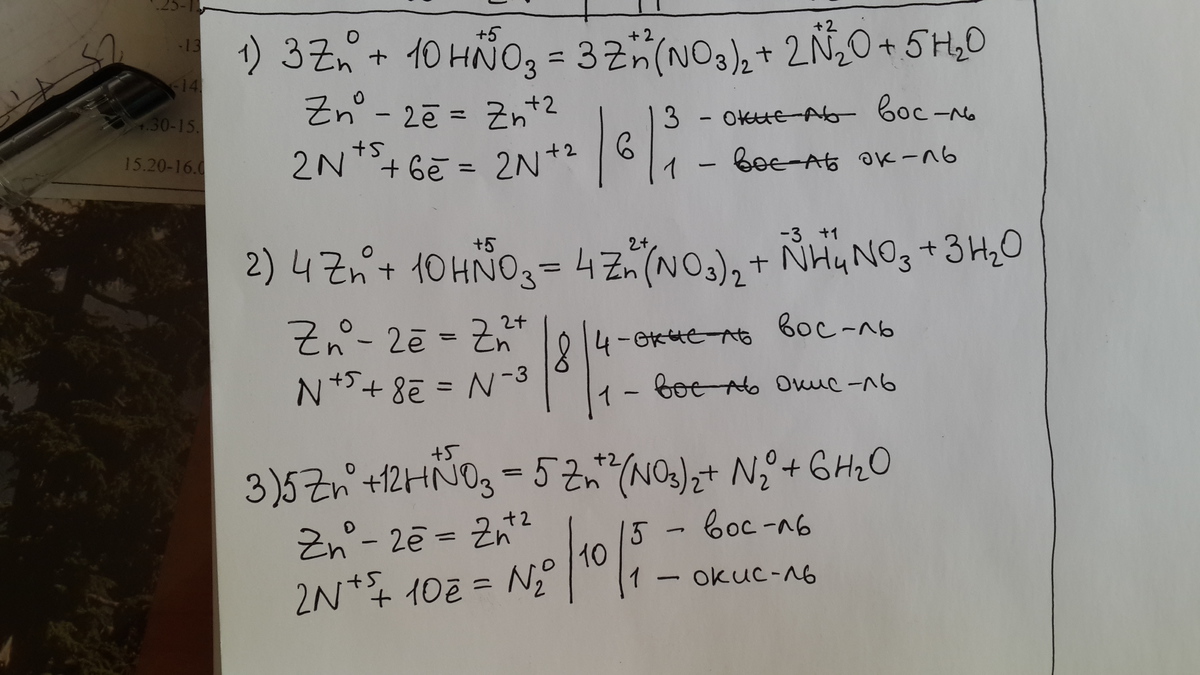 .25-1
-13
-14
4.30-15.
15.20-16.0
1) 3Zn⁰ + 10HN⁺⁵O₃ = 3Zn⁺²(NO₃)₂ + 2N⁺²₂O + 5H₂O
Zn⁰ - 2ē = Zn⁺² | 6 | 3 - ~~окис-ль~~ вос-ль
2N⁺⁵ + 6ē = 2N⁺² | 6 | 1 - ~~вос-ль~~ ок-ль
2) 4Zn⁰ + 10HN⁺⁵O₃ = 4Zn²⁺(NO₃)₂ + N⁻³H⁺¹₄NO₃ + 3H₂O
Zn⁰ - 2ē = Zn²⁺ | 8 | 4 - ~~окис-ль~~ вос-ль
N⁺⁵ + 8ē = N⁻³ | 8 | 1 - ~~вос-ль~~ окис-ль
3) 5Zn⁰ + 12HN⁺⁵O₃ = 5Zn⁺²(NO₃)₂ + N₂⁰ + 6H₂O
Zn⁰ - 2ē = Zn⁺² | 10 | 5 - вос-ль
2N⁺⁵ + 10ē = N₂⁰ | 10 | 1 - окис-ль